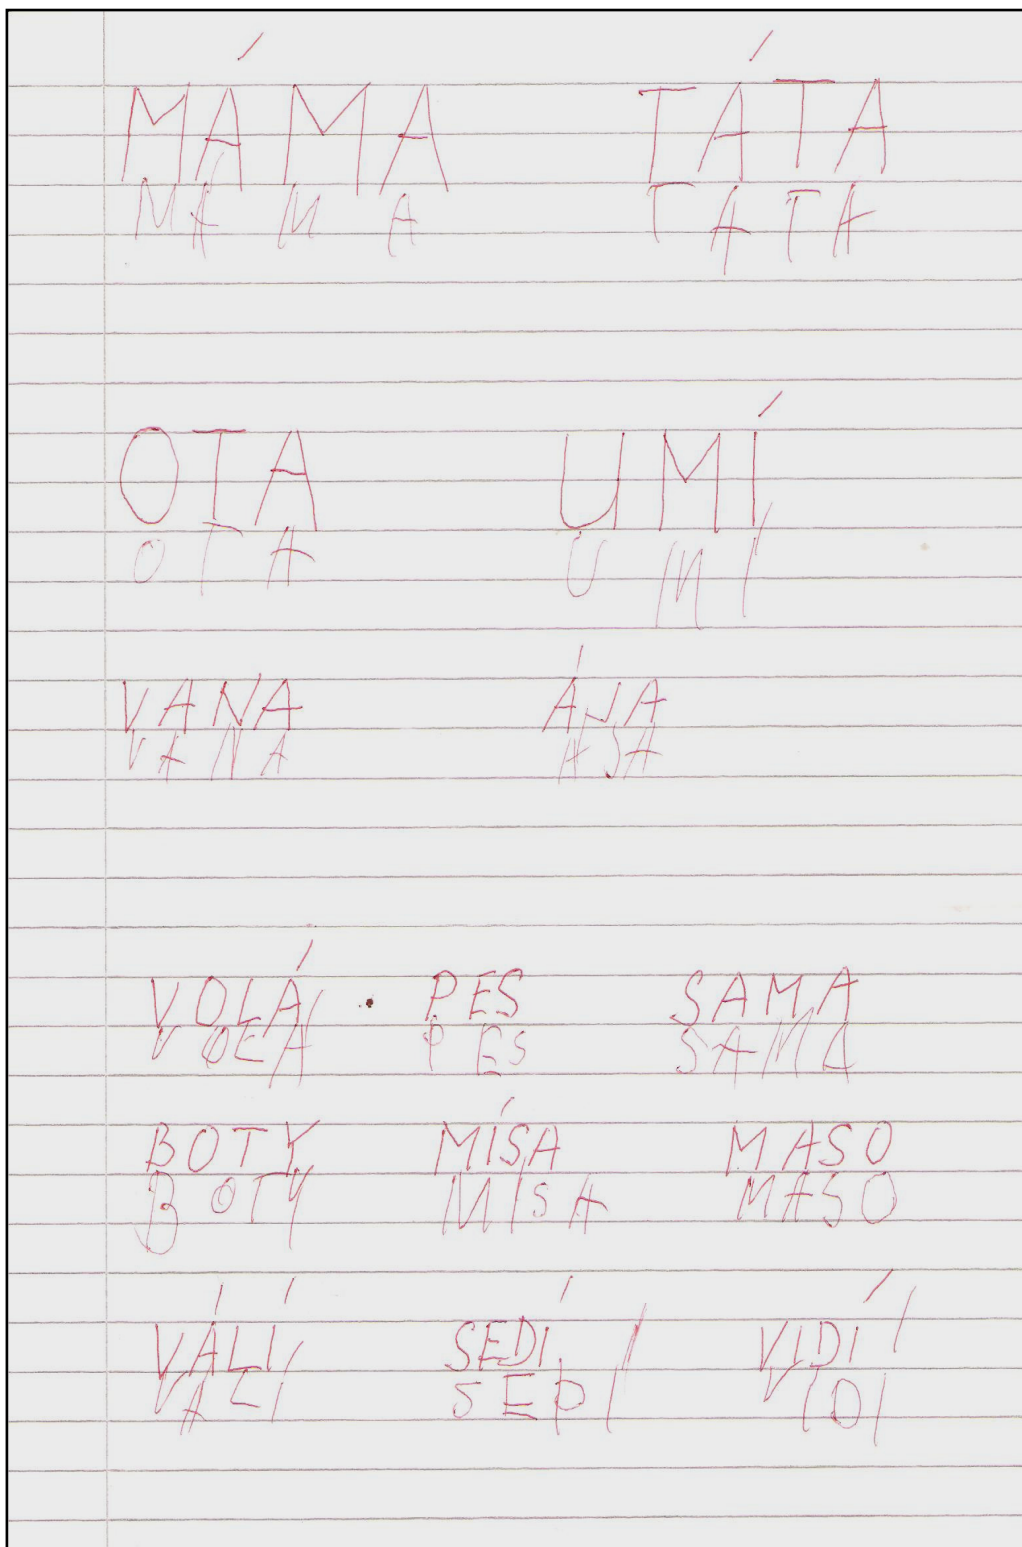 MÁMA TÁTA
MÁ M A T A T A
OTA UMÍ
O T A U MÍ
VANA ÁJA
VANA AJA
VOLÁ PES SAMA
VOLÁ PES SAMA
BOTY MÍSA MASO
BOTY MÍSA MASO
VÁLÍ SEDÍ VIDÍ
VALÍ SEDÍ VIDÍ